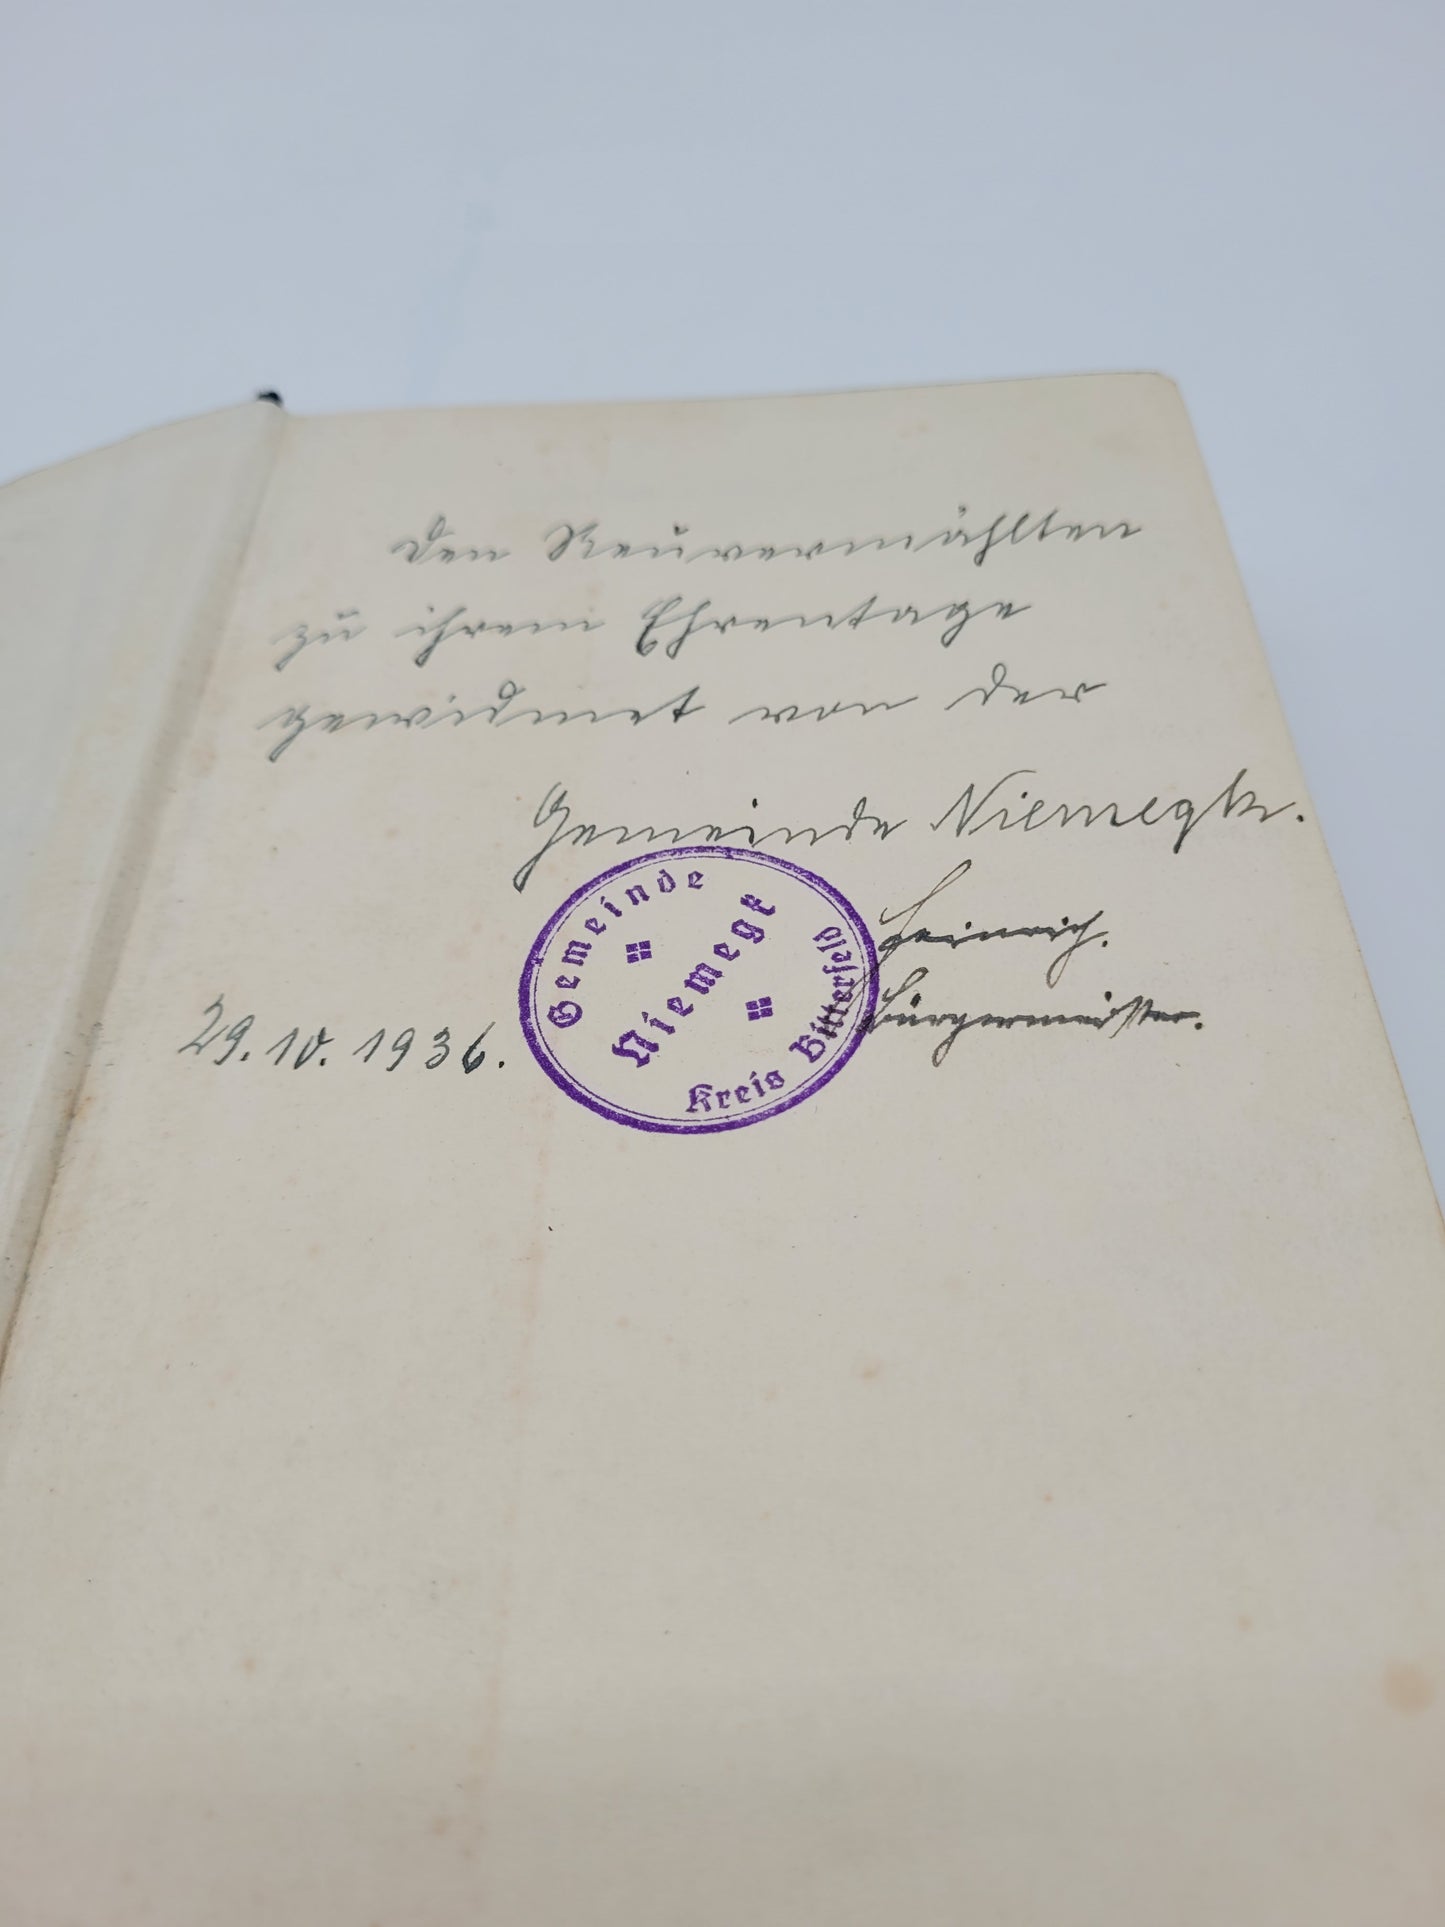 Den Neuvermählten
zu ihrem Ehrentage
gewidmet von der
Gemeinde Niemegk.
Heinrich.
Bürgermeister.
29.10.1936.
Gemeinde
Niemegk
Kreis Bitterfeld